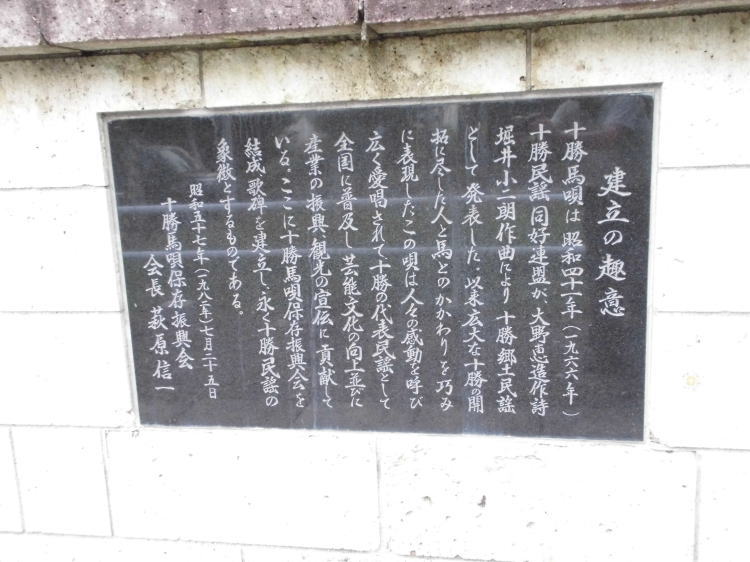 建立の趣意
十勝馬唄は昭和四十一年（一九六六年）
十勝民謡同好連盟が、大野恵造作詩
堀井小二朗作曲により十勝郷土民謡
として発表した。以来広大な十勝の開
拓に尽した人と馬とのかかわりを巧み
に表現したこの唄は人々の感動を呼び
広く愛唱されて十勝の代表民謡として
全国に普及し芸能文化の向上並びに
産業の振興、観光の宣伝に貢献して
いる。ここに十勝馬唄保存振興会を
結成、歌碑を建立し、永く十勝民謡の
象徴とするものである。
昭和五十七年（一九八二年）七月二十五日
十勝馬唄保存振興会
会長 萩原信一